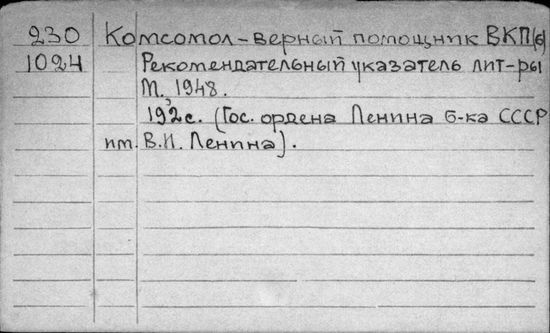 230 Комсомол-верный помощник ВКП(б)
1024 Рекомендательный указатель лит-ры
М. 1948.
192с. (Гос. ордена Ленина б-ка СССР
им. В.И. Ленина).